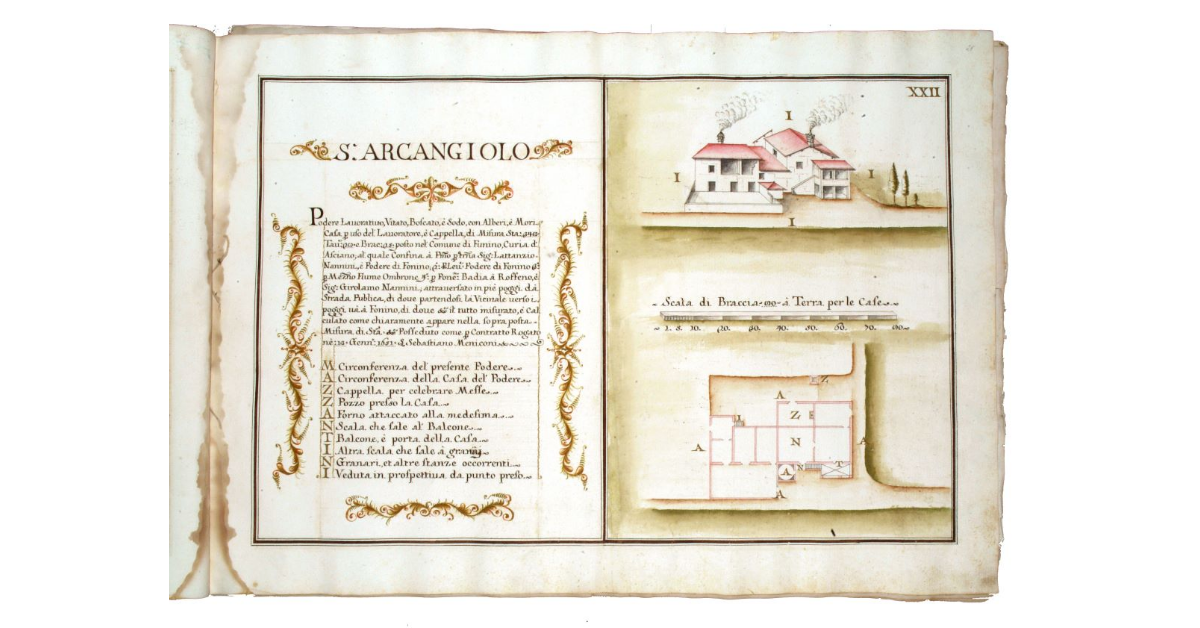 XXII
S.: ARCANGIOLO
Podere Lauoratiuo, Vitato, Boscato, è Sodo, con Alberi, è Mori
Casa, p uso del Lauoratore, è Cappella, di Misura Sta:
e Brac: posto nel Comune di Fonino, Curia d'
Asciano, al quale Confina à Sig: Lattanzio
Nannini, è Podere di Fonino, Podere di Fonino
p Fiume Ombrone, p Badia à Roffeno, è
Sig: Girolamo Nannini, attrauersato in piè poggi, dà
Strada Publica, di doue partendosi, la Vicinale uerso i
poggi uà à Fonino, di doue il tutto misurato, è Cal
culato come chiaramente appare nella sopra posta
Misura di Sta. Posseduto come p Contratto Rogato
Genn: Sebastiano Meniconi
M Circonferenza del presente Podere
A Circonferenza della Casa del Podere
Z Cappella per celebrare Messe
Z Pozzo presso la Casa
A Forno attaccato alla medesima
N Scala che sale al Balcone
T Balcone, è porta della Casa
I Altra scala che sale à granij
N Granari, et altre stanze occorrenti
I Veduta in prospettiua da punto preso
I
I
I
I
Scala di Braccia 90 à Terra per le Case
10. 20. 30. 40. 50. 60. 70. 80.
Z
A
Z
I
A
N
A
A
N
T
A